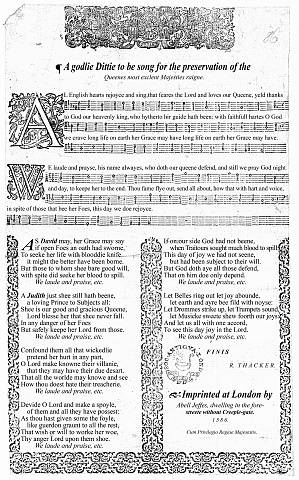 ¶ A godlie Dittie to be song for the preservation of the
Queenes most exclent Majesties raigne.
AL English hearts rejoyce and sing, that feares the Lord and loves our Queene, yeld thanks
to God our heavenly king, who hytherto hir guide hath been; with faithfull hartes O God
we crave long life on earth her Grace may have long life on earth her Grace may have.
WE laude and praise, his name alwayes, who doth our queene defend, and still we pray God night
and day, to keepe her to the end. Thou fame flye out, send all about, how that with hart and voice,
in spite of those that bee her Foes, this day we doe rejoyce.
AS David may, her Grace may say
if open Foes an oath had sworne,
To seeke her life with bloodie knife,
it might the better have been borne.
But those to whom shee hare good will,
with spite did seeke her blood to spill.
We laude and praise, etc.
A Judith just shee still hath beene,
a loving Prince to Subjects all:
Shee is our good and gracious Queene,
Lord blesse her that shee never fall.
In any danger of her Foes
But safely keepe her Lord from those.
We laude and praise, etc.
Confound them all that wickedlie
pretend her hurt in any part.
O Lord make knowne their villanie,
that they may have their due desart.
That all the worlde may knowe and see
How thou doest hate their treacherie.
We laude and praise, etc.
Devide O Lord and make a spoyle,
of them and all they have possest:
As thou hast given some the foyle,
like guerdon graunt to all the rest,
That wish or will to worke her woe,
Thy anger Lord upon them shoe.
We laude and praise, etc.
If on our side God had not beene,
when Traitours sought much blood to spill
This day of joy we had not seene,
but had been subject to their will.
But God doth aye all those defend,
That on him doe only depend.
We laude and praise, etc.
Let Belles ring out let joy abounde,
let earth and ayre bee fild with noyse:
Let Drommes strike up, let Trumpets sound,
let Musicke sweete shew forth our joys.
And let us all with one accord,
To see this day joy in the Lord.
We laude and praise, etc.
FINIS
R. THACKER.
Imprinted at London by
Abell Jeffes, dwelling in the fore-
streete without Creeple-gate.
1586.
Cum Privilegio Regiae Majestatis.